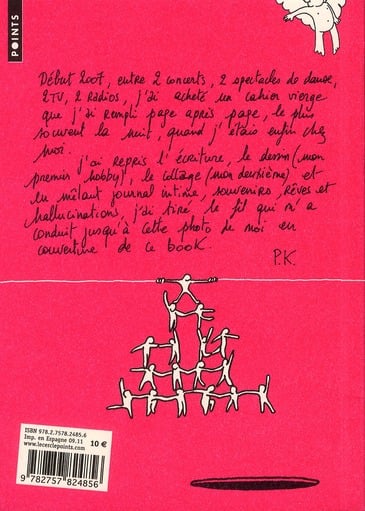 POINTS
Début 2007, entre 2 concerts, 2 spectacles de danse,
2 TV, 2 radios, j'ai acheté un cahier vierge
que j'ai rempli page après page, le plus
souvent la nuit, quand j'étais enfin chez
moi.
j'ai repris l'écriture, le dessin (mon
premier hobby), le collage (mon deuxième) et
en mêlant journal intime, souvenirs, rêves et
hallucinations, j'ai tiré le fil qui m'a
conduit jusqu'à cette photo de moi en
couverture de ce book.
P.K.
ISBN 978.2.7578.2485.6
Imp. en Espagne 09.11
www.lecerclepoints.com
10 €
9 782757 824856